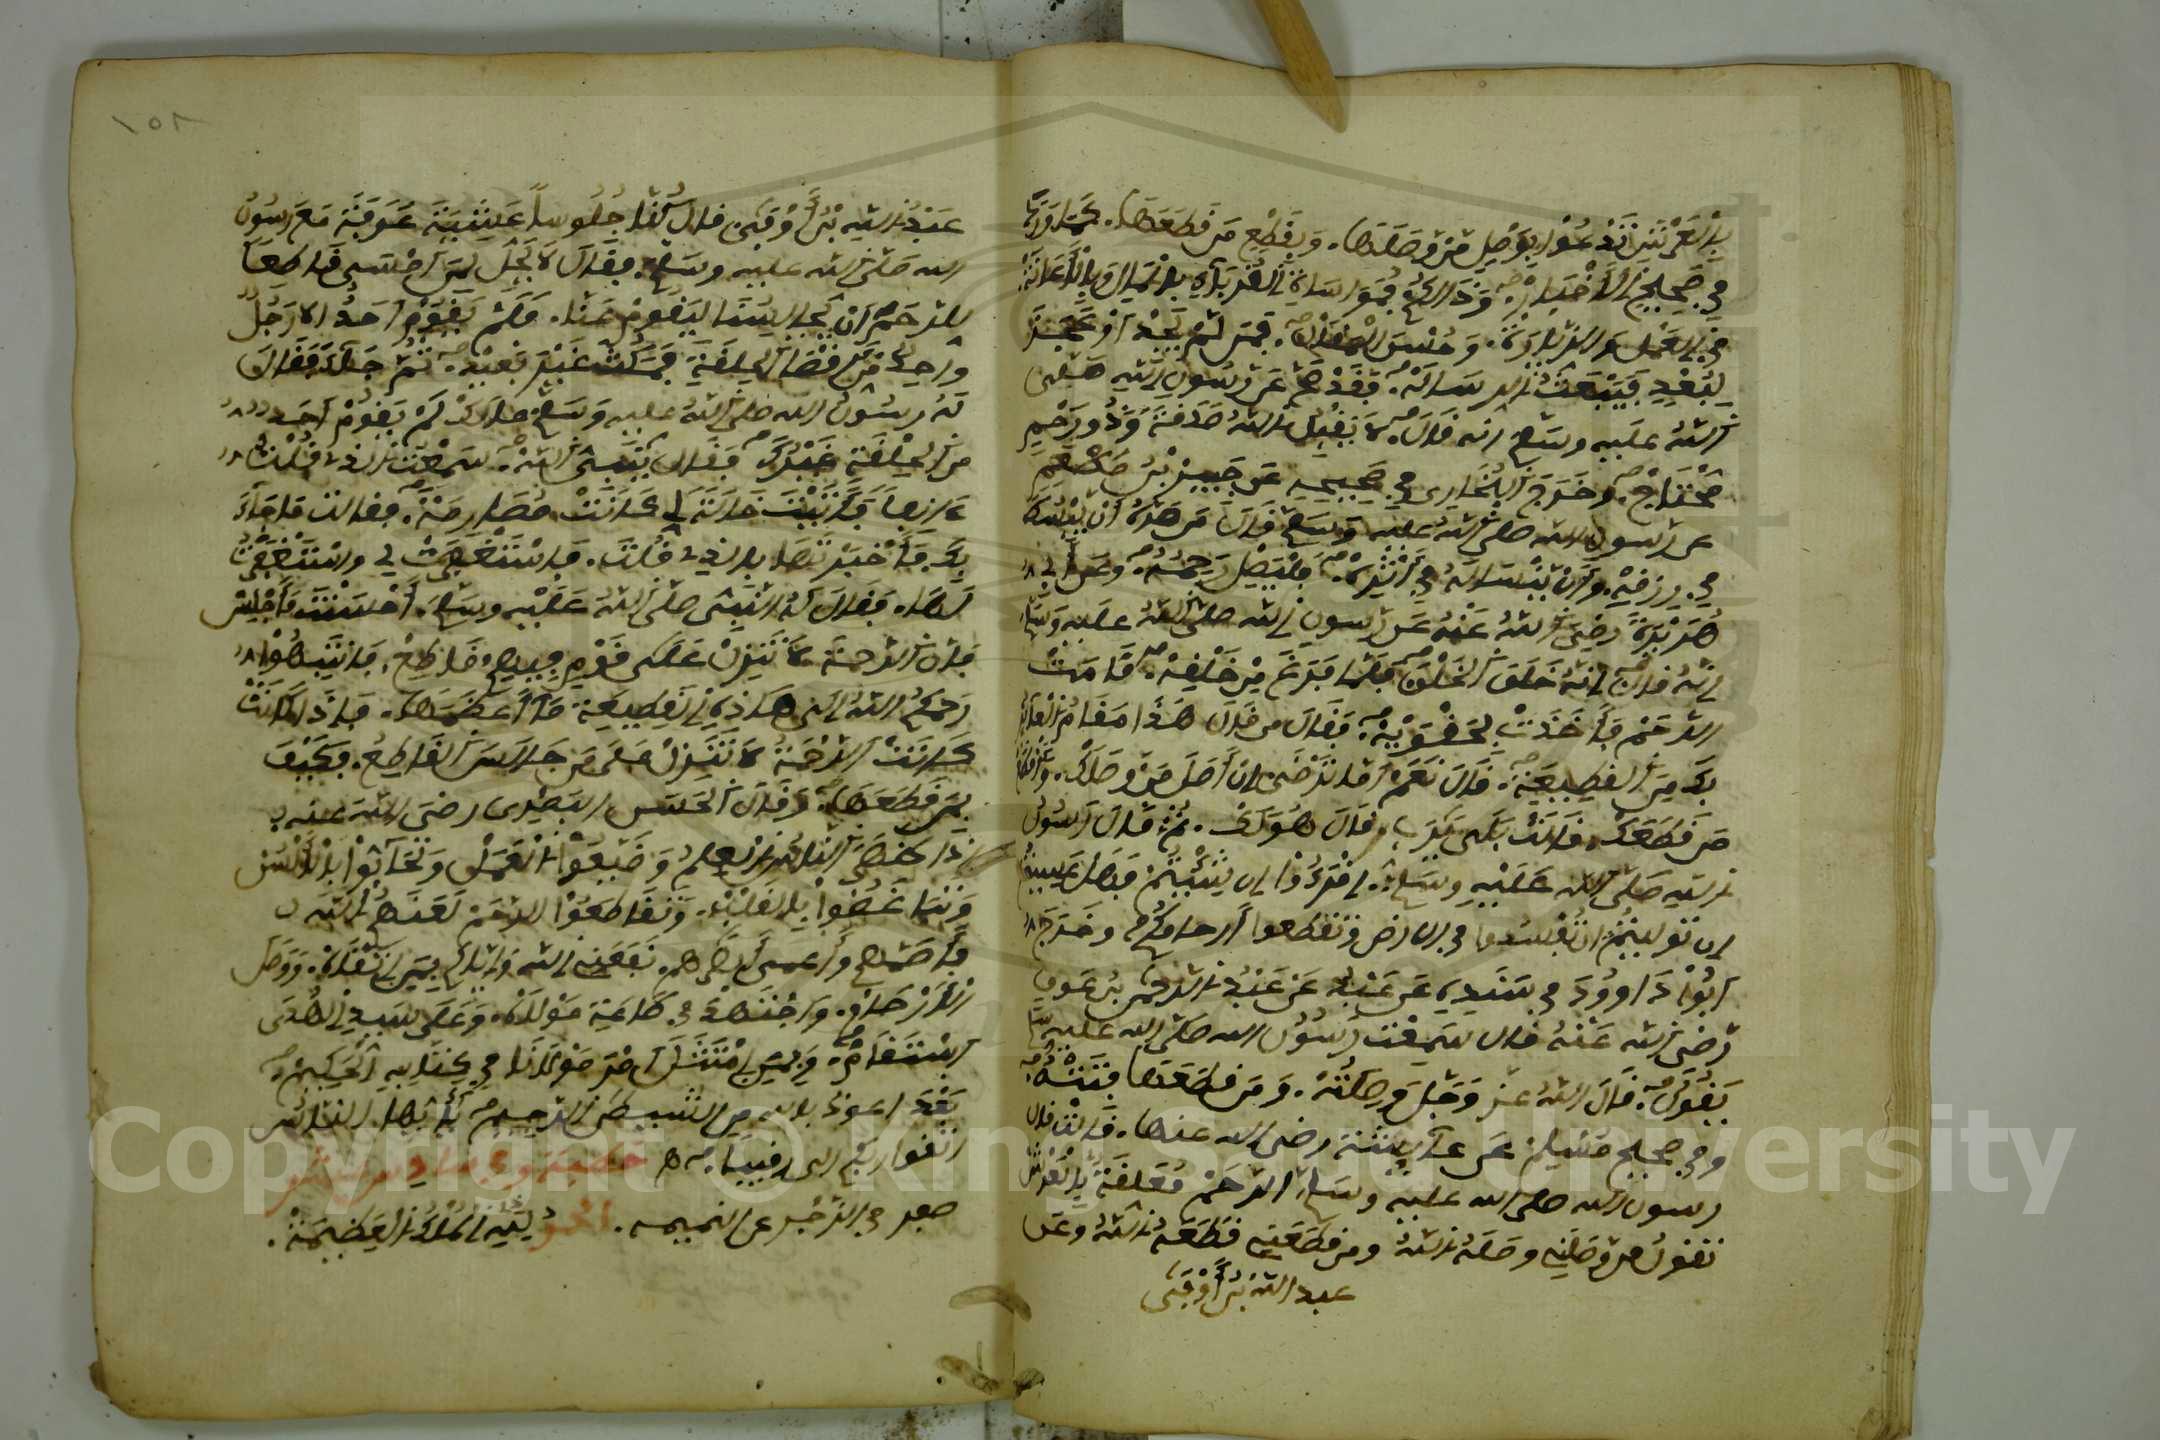 بالعرش تدعوا بوصل من وصلها. وبقطع من قطعها. كما ورد
في صحيح الأخبار. وذالكم بمواساة القرباء بالمال وبالأعانة
في العمل والزيارة. وحسن المقال. فمن لم يجد أو عجز
لبعد فيبعث السلام. فقد صح عن رسول الله صلى
الله عليه وسلم انه قال. لا يقبل الله صدقة وذو رحم
محتاج. وخرج البخاري في صحيحه عن جبير بن مطعم
عن رسول الله صلى الله عليه وسلم قال من سره أن يبسط
في رزقه. وأن ينسأ له في أثره. فليصل رحمه. وعن أبي
هريرة رضي الله عنه عن رسول الله صلى الله عليه وسلم
انه قال إن الله خلق الخلق فلما فرغ من خلقه. قامت
الرحم فأخذت بحقويه. فقال مه قال هذا مقام العائذ
بك من القطيعة. قال نعم أما ترضى ان أصل من وصلك. وأقطع
من قطعك. قالت بلى يرب قال هو لك. ثم قال رسول
الله صلى الله عليه وسلم. اقرءوا إن شئتم فهل عسيتم
إن توليتم ان تفسدوا في الارض وتقطعوا أرحامكم وخرج
أبو داوود في سننه عن عبد الرحمن بن عوف
رضي الله عنه قال سمعت رسول الله صلى الله عليه وسلم
يقول. قال الله عز وجل من وصلها وصلته. ومن قطعها بتته.
وفي صحيح مسلم عن عائشة رضي الله عنها. قالت قال
رسول الله صلى الله عليه وسلم الرحم معلقة بالعرش
تقول من وصلني وصله الله ومن قطعني قطعه الله وعن
عبد الله بن أوفى
١٥٦
عبد الله بن أوفى قال كنا جلوسا عشية عرفة مع رسول
الله صلى الله عليه وسلم. فقال لا يحل لمن أمسى قاطعا
للرحم ان يجالسنا ليقوم عنا. فلم يقوم أحد الا رجل
واحد من أقصا الحلقة فمكث غير بعيد. ثم جاء فقال
له رسول الله صلى الله عليه وسلم مالك لم يقوم أحد
من الحلقة غيرك. فقال يا نبي الله. سمعت الذي قلت
فأتيت خالة لي كانت مصارمة. فقالت ما جاء
بك. فأخبرتها بالذي قلت. فاستغفرت لي واستغفرت
لها. فقال له النبي صلى الله عليه وسلم. أحسنت فأجلس
فإن الرحمة لا تنزل على قوم فيهم قاطع. فانتبهوا
رحمكم الله الى هاذه القطيعة ما أعظمها. فإذا كانت
كانت الرحمة لا تنزل على من جالس القاطع. فكيف
بمن قطعها. وقال الحسن البصري رضي الله عنه
إذا أظهر الناس العلم وضيعوا العمل وتحابوا بالألسن
وتباغضوا بالقلب. وتقاطعوا الرحم لعنهم الله
فأصمهم وأعمى أبصارهم. نفعني الله وإياكم بمن اتقاه. ووصل
الأرحام. واجتهد في طاعة مولاه. وعلى سبيل الهدى
استقام. وبمن امتثل أمر مولانا في كتابه الحكيم.
بعد أعوذ بالله من الشيطن الرجيم يأيها الناس
اتقوا ربكم الى رقيبا. هـ خطبة
صفر في الزجر عن النميمة. الحمد لله الملك العظيمة.
Copyright © King Saud University